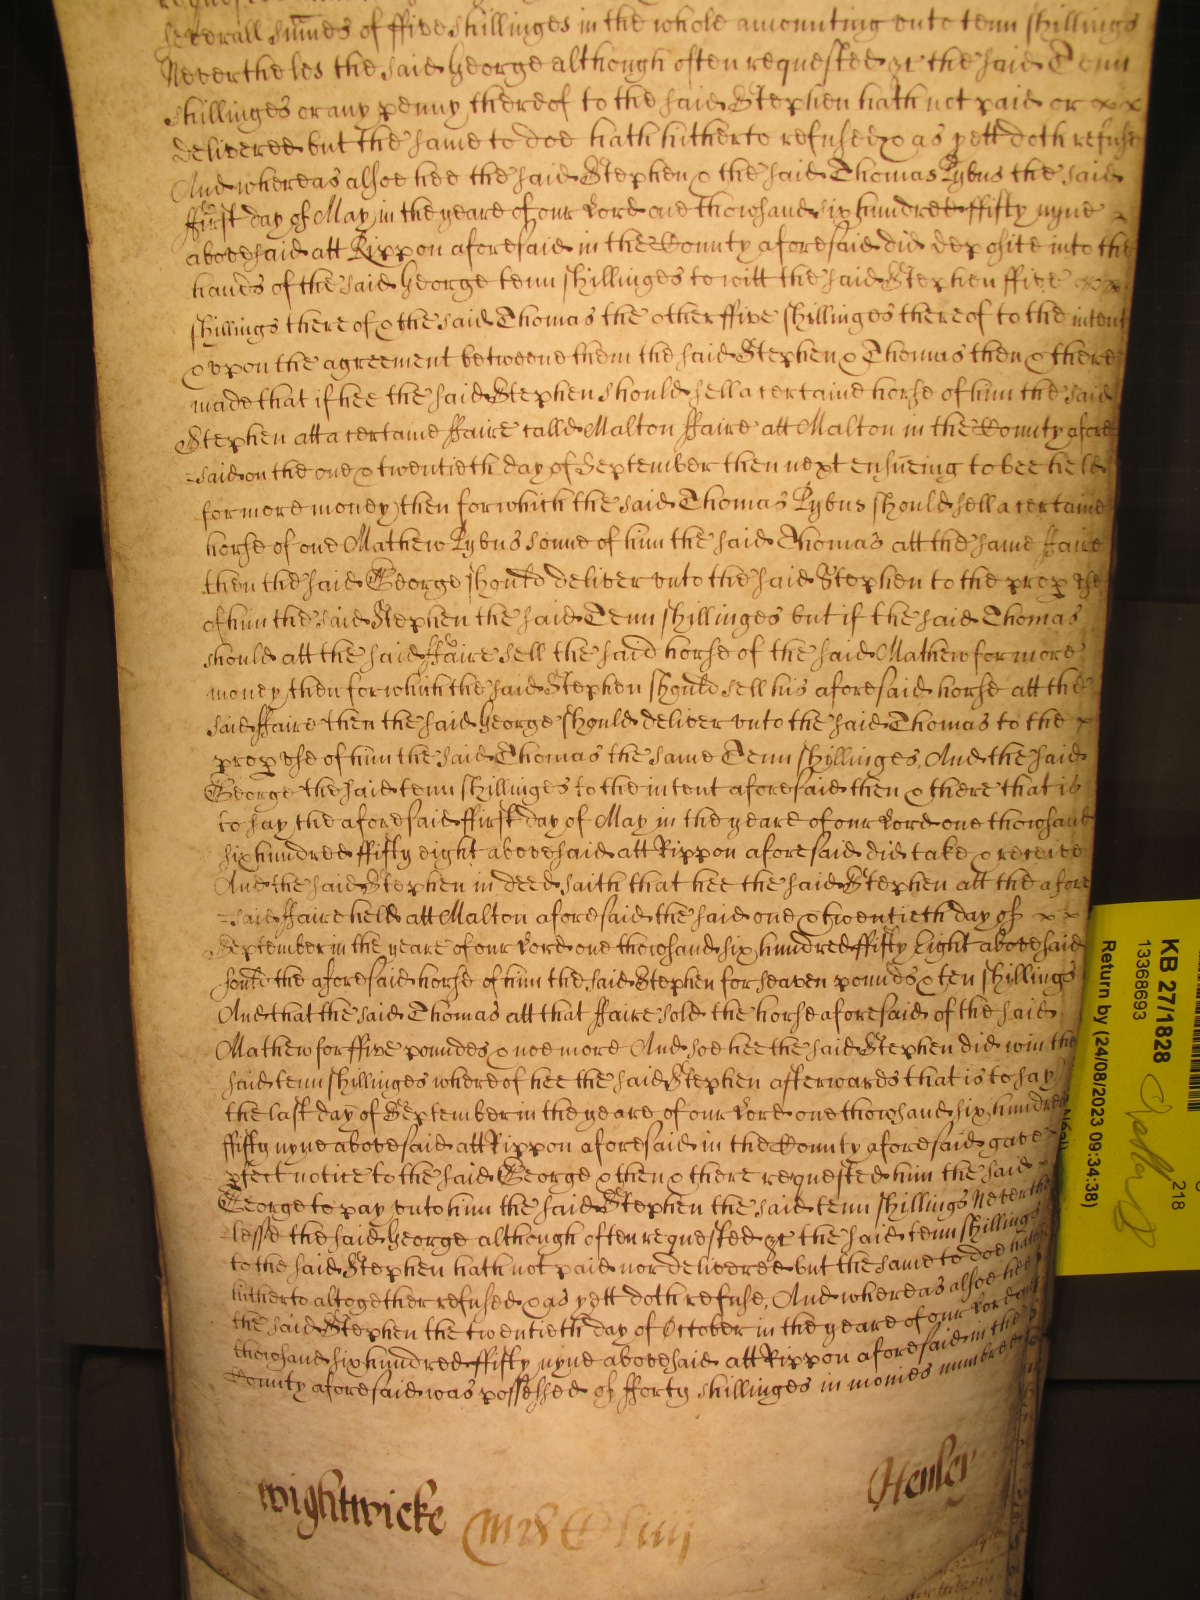 severall summes of ffive shillinges in the whole amounting unto tenn shillings
Nevertheles the said George although often requested &c the said Tenn
shillinges or any penny thereof to the said Stephen hath not paid or
delivered but the same to doe hath hitherto refused & as yett doth refuse
And whereas alsoe hee the said Stephen & the said Thomas Pybus the said
ffirst day of May in the yeare of our Lord one thowsand six hundred ffifty nyne
abovesaid att Rippon aforesaid in the County aforesaid did deposite into the
hands of the said George tenn shillinges to witt the said Stephen ffive
shillings thereof & the said Thomas the other ffive shillinges thereof to the intent
& upon the agreement betweene them the said Stephen & Thomas then & there
made that if hee the said Stephen should sell a certaine horse of him the said
Stephen att a certaine ffaire calld Malton ffaire att Malton in the County afore
-said on the one & twentieth day of September then next ensueing to bee held
for more money then for which the said Thomas Pybus should sell a certaine
horse of one Mathew Pybus sonne of him the said Thomas att the same ffaire
then the said George should deliver unto the said Stephen to the prop use
of him the said Stephen the said Tenn shillinges but if the said Thomas
should att the said ffaire sell the said horse of the said Mathew for more
money then for which the said Stephen should sell his aforesaid horse att the
said ffaire then the said George should deliver unto the said Thomas to the
prop use of him the said Thomas the same Tenn shillinges, And the said
George the said tenn shillinges to the intent aforesaid then & there that is
to say the aforesaid ffirst day of May in the yeare of our Lord one thowsand
six hundred ffifty eight abovesaid att Rippon aforesaid did take & receive
And the said Stephen in deed saith that hee the said Stephen att the afore
-said ffaire held att Malton aforesaid the said one & twentieth day of
September in the yeare of our Lord one thowsand six hundred ffifty Eight abovesaid
sould the aforesaid horse of him the said Stephen for seaven poundes & ten shillings
And that the said Thomas att that ffaire sold the horse aforesaid of the said
Mathew for ffive poundes & noe more And soe hee the said Stephen did win the
said tenn shillinges whereof hee the said Stephen afterwards that is to say
the last day of September in the yeare of our Lord one thowsand six hundred
ffifty nyne abovesaid att Rippon aforesaid in the County aforesaid gave
pfect notice to the said George & then & there requested him the said
George to pay unto him the said Stephen the said tenn shillings Neverthe
-lesse the said George although often requested &c the said tenn shillings
to the said Stephen hath not paid nor delivered but the same to doe hath
hitherto altogether refused & as yett doth refuse, And whereas alsoe hee
the said Stephen the twentieth day of October in the yeare of our Lord one
thowsand six hundred ffifty nyne abovesaid att Rippon aforesaid in the
County aforesaid was possessed of fforty shillinges in monies numbred
Wightwicke
Henley
KB 27/1828
13368693
218
Return by (24/08/2023 09:34:38)